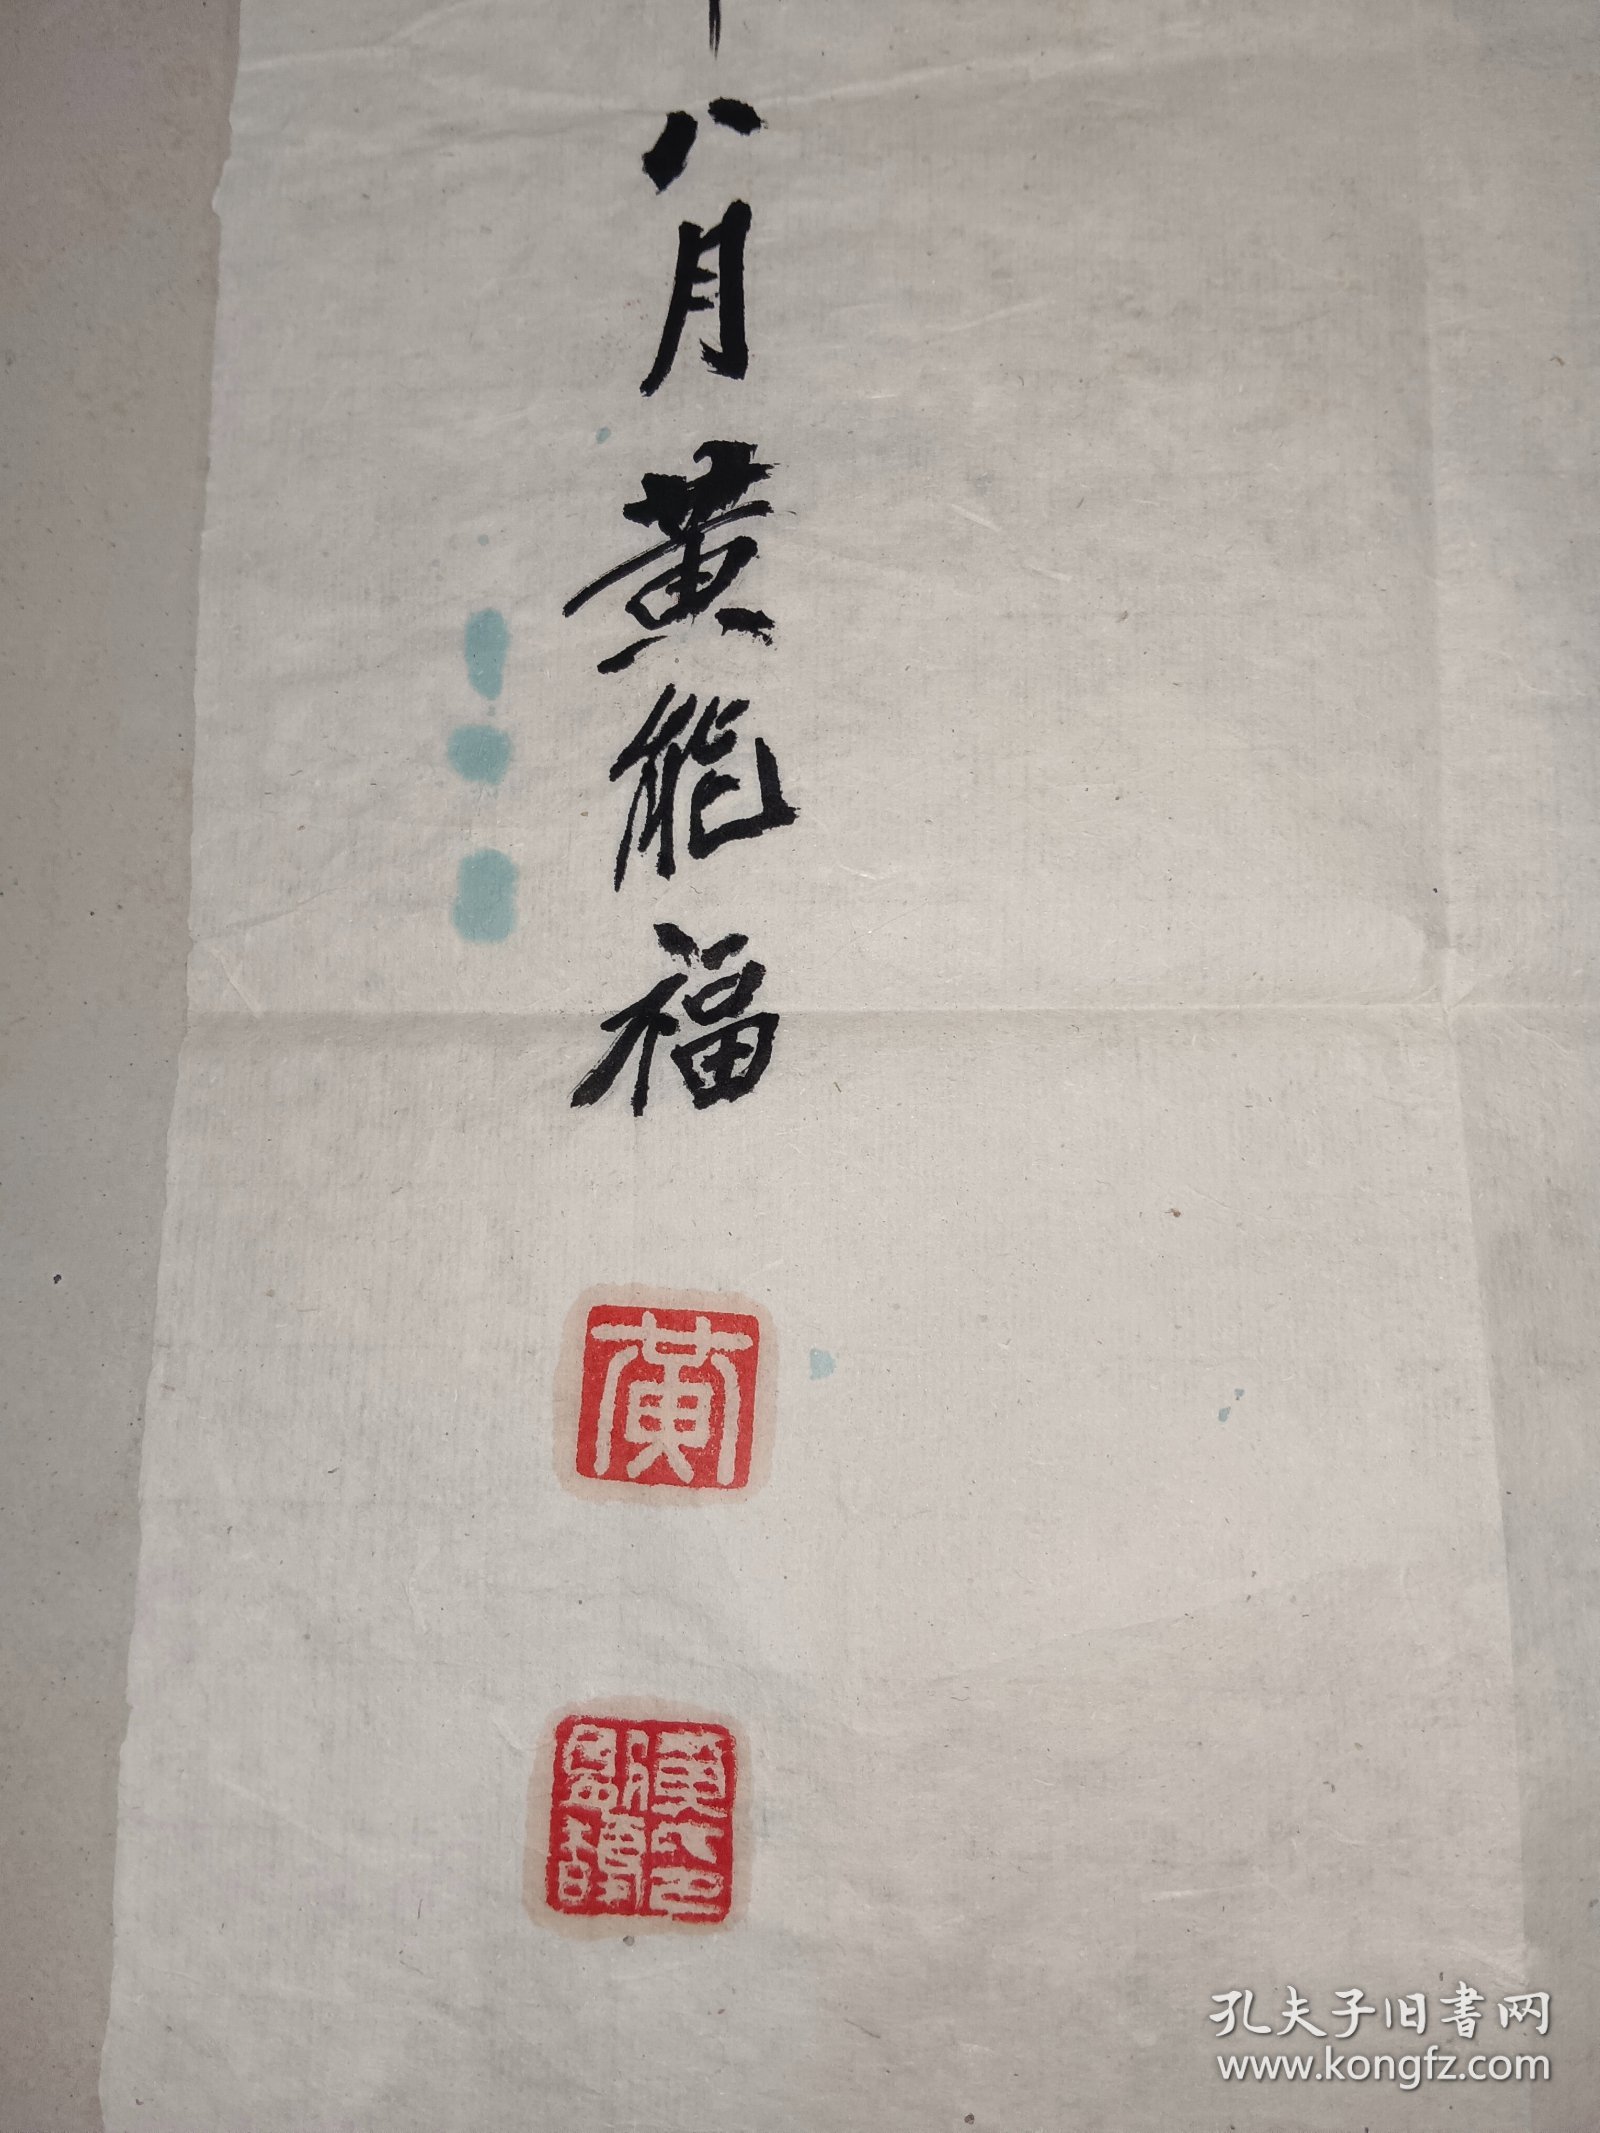 八月黄能福
黄
孔夫子旧书网
www.kongfz.com